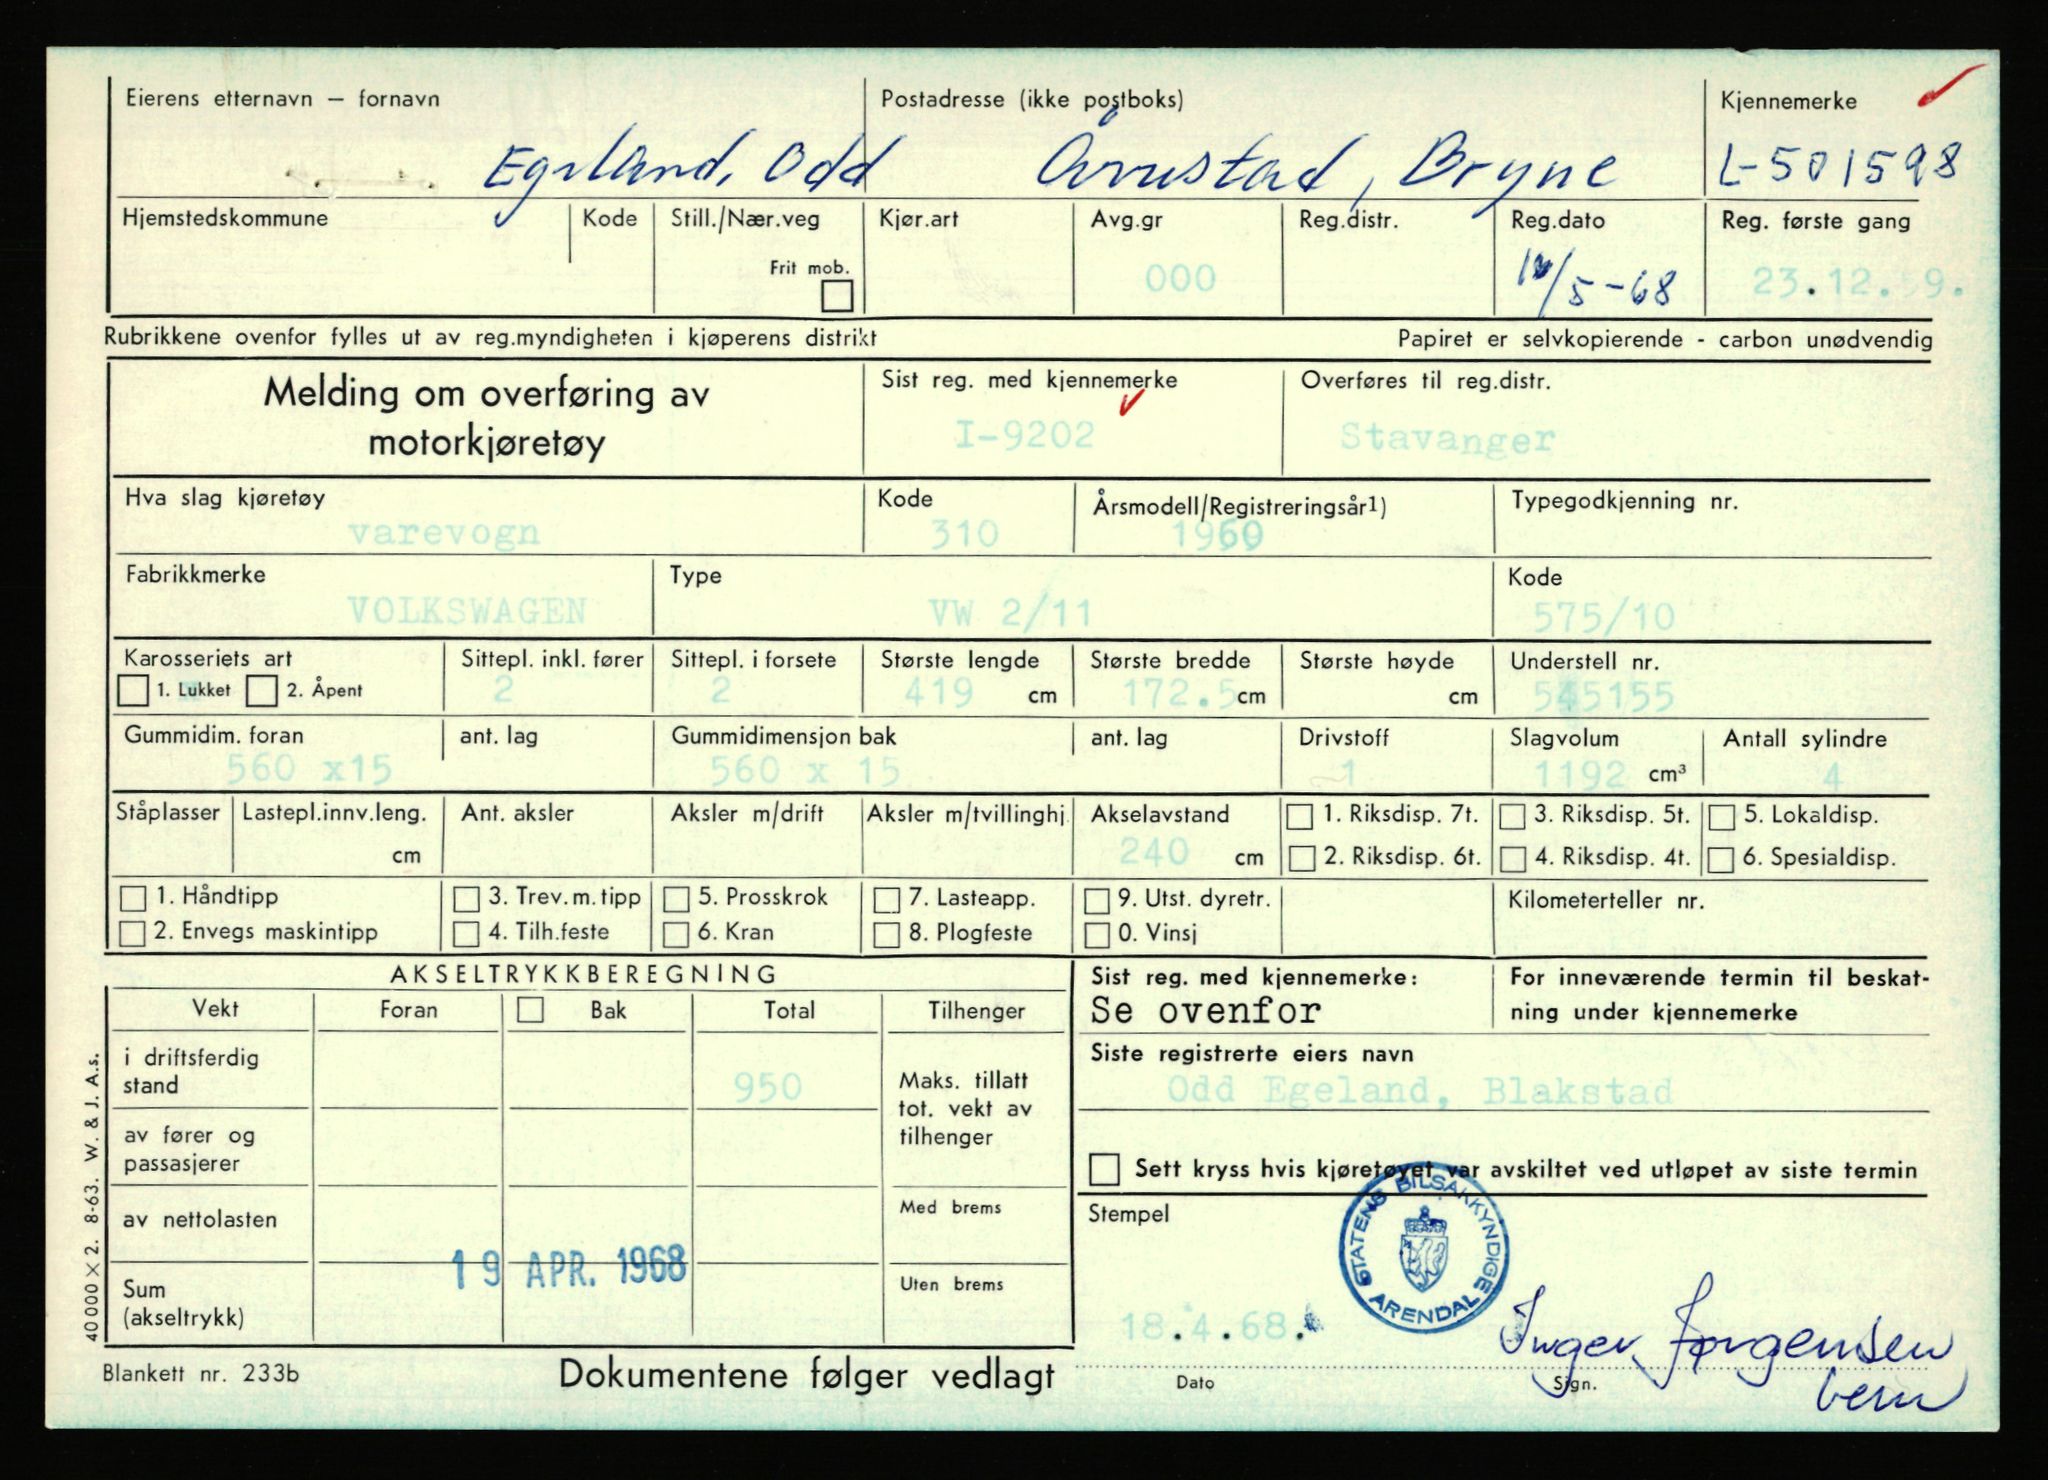 Eierens etternavn – fornavn Postadresse (ikke postboks) Kjennemerke
Egeland, Odd Bryne L-501598
Hjemstedskommune Kode Still./Nær.veg Kjør.art Avg.gr Reg.distr. Reg.dato Reg. første gang
Frit mob. 000 /5-68 23.12.59.
Rubrikkene ovenfor fylles ut av reg.myndigheten i kjøperens distrikt Papiret er selvkopierende - carbon unødvendig
Melding om overføring av
motorkjøretøy
Sist reg. med kjennemerke Overføres til reg.distr.
I-9202 Stavanger
Hva slag kjøretøy Kode Årsmodell/Registreringsår1) Typegodkjenning nr.
varevogn 310 1960
Fabrikkmerke Type Kode
VOLKSWAGEN VW 2/11 575/10
Karosseriets art Sittepl. inkl. fører Sittepl. i forsete Største lengde Største bredde Største høyde Understell nr.
1. Lukket 2. Åpent 2 2 419 cm 172.5 cm cm 545155
Gummidim. foran ant. lag Gummidimensjon bak ant. lag Drivstoff Slagvolum Antall sylindre
560 x15 560 x 15 1 1192 cm³ 4
Ståplasser Lastepl.innv.leng. Ant. aksler Aksler m/drift Aksler m/tvillinghj. Akselavstand 1. Riksdisp. 7t. 3. Riksdisp. 5t. 5. Lokaldisp.
cm 240 cm 2. Riksdisp. 6t. 4. Riksdisp. 4t. 6. Spesialdisp.
1. Håndtipp 3. Trev.m.tipp 5. Prosskrok 7. Lasteapp. 9. Utst. dyretr. Kilometerteller nr.
2. Envegs maskintipp 4. Tilh.feste 6. Kran 8. Plogfeste 0. Vinsj
AKSELTRYKKBEREGNING
Vekt Foran Bak Total Tilhenger
i driftsferdig
stand 950
Maks. tillatt
tot. vekt av
tilhenger
av fører og
passasjerer
av nettolasten
Med brems
19 APR. 1968
Sum
(akseltrykk)
Uten brems
Sist reg. med kjennemerke: For inneværende termin til beskat-
Se ovenfor ning under kjennemerke
Siste registrerte eiers navn
Odd Egeland, Blakstad
Sett kryss hvis kjøretøyet var avskiltet ved utløpet av siste termin
Stempel
STATENS BILSAKKYNDIGE
ARENDAL
18.4.68.
Inger Jørgensen
Dato Sign.
Blankett nr. 233b Dokumentene følger vedlagt
40000 x 2. 8-63. W. & J. A.s.